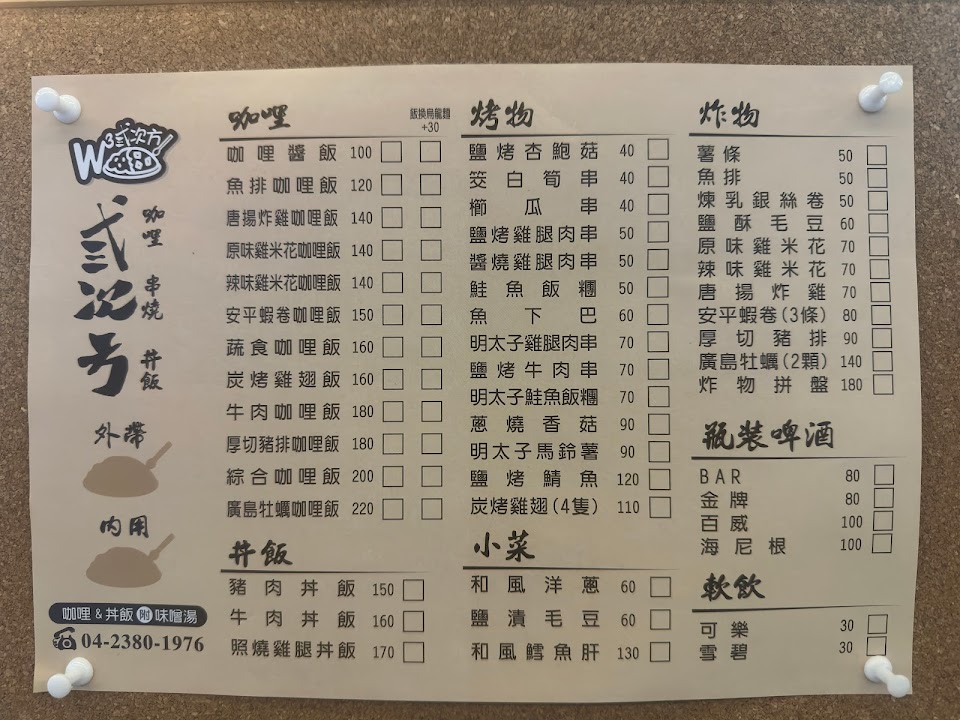 W³弐次方
弐次号
咖哩
串燒
丼飯
外帶
內用
咖哩&丼飯附味噌湯
☎04-2380-1976
咖哩
飯換烏龍麵
+30
咖哩醬飯 100
魚排咖哩飯 120
唐揚炸雞咖哩飯 140
原味雞米花咖哩飯 140
辣味雞米花咖哩飯 140
安平蝦卷咖哩飯 150
蔬食咖哩飯 160
炭烤雞翅飯 160
牛肉咖哩飯 180
厚切豬排咖哩飯 180
綜合咖哩飯 200
廣島牡蠣咖哩飯 220
丼飯
豬肉丼飯 150
牛肉丼飯 160
照燒雞腿丼飯 170
烤物
鹽烤杏鮑菇 40
筊白筍串 40
櫛瓜串 40
鹽烤雞腿肉串 50
醬燒雞腿肉串 50
鮭魚飯糰 50
魚下巴 60
明太子雞腿肉串 70
鹽烤牛肉串 70
明太子鮭魚飯糰 70
蔥燒香菇 90
明太子馬鈴薯 90
鹽烤鯖魚 120
炭烤雞翅(4隻) 110
小菜
和風洋蔥 60
鹽漬毛豆 60
和風鱈魚肝 130
炸物
薯條 50
魚排 50
煉乳銀絲卷 50
鹽酥毛豆 60
原味雞米花 70
辣味雞米花 70
唐揚炸雞 70
安平蝦卷(3條) 80
厚切豬排 90
廣島牡蠣(2顆) 140
炸物拼盤 180
瓶裝啤酒
BAR 80
金牌 80
百威 100
海尼根 100
軟飲
可樂 30
雪碧 30